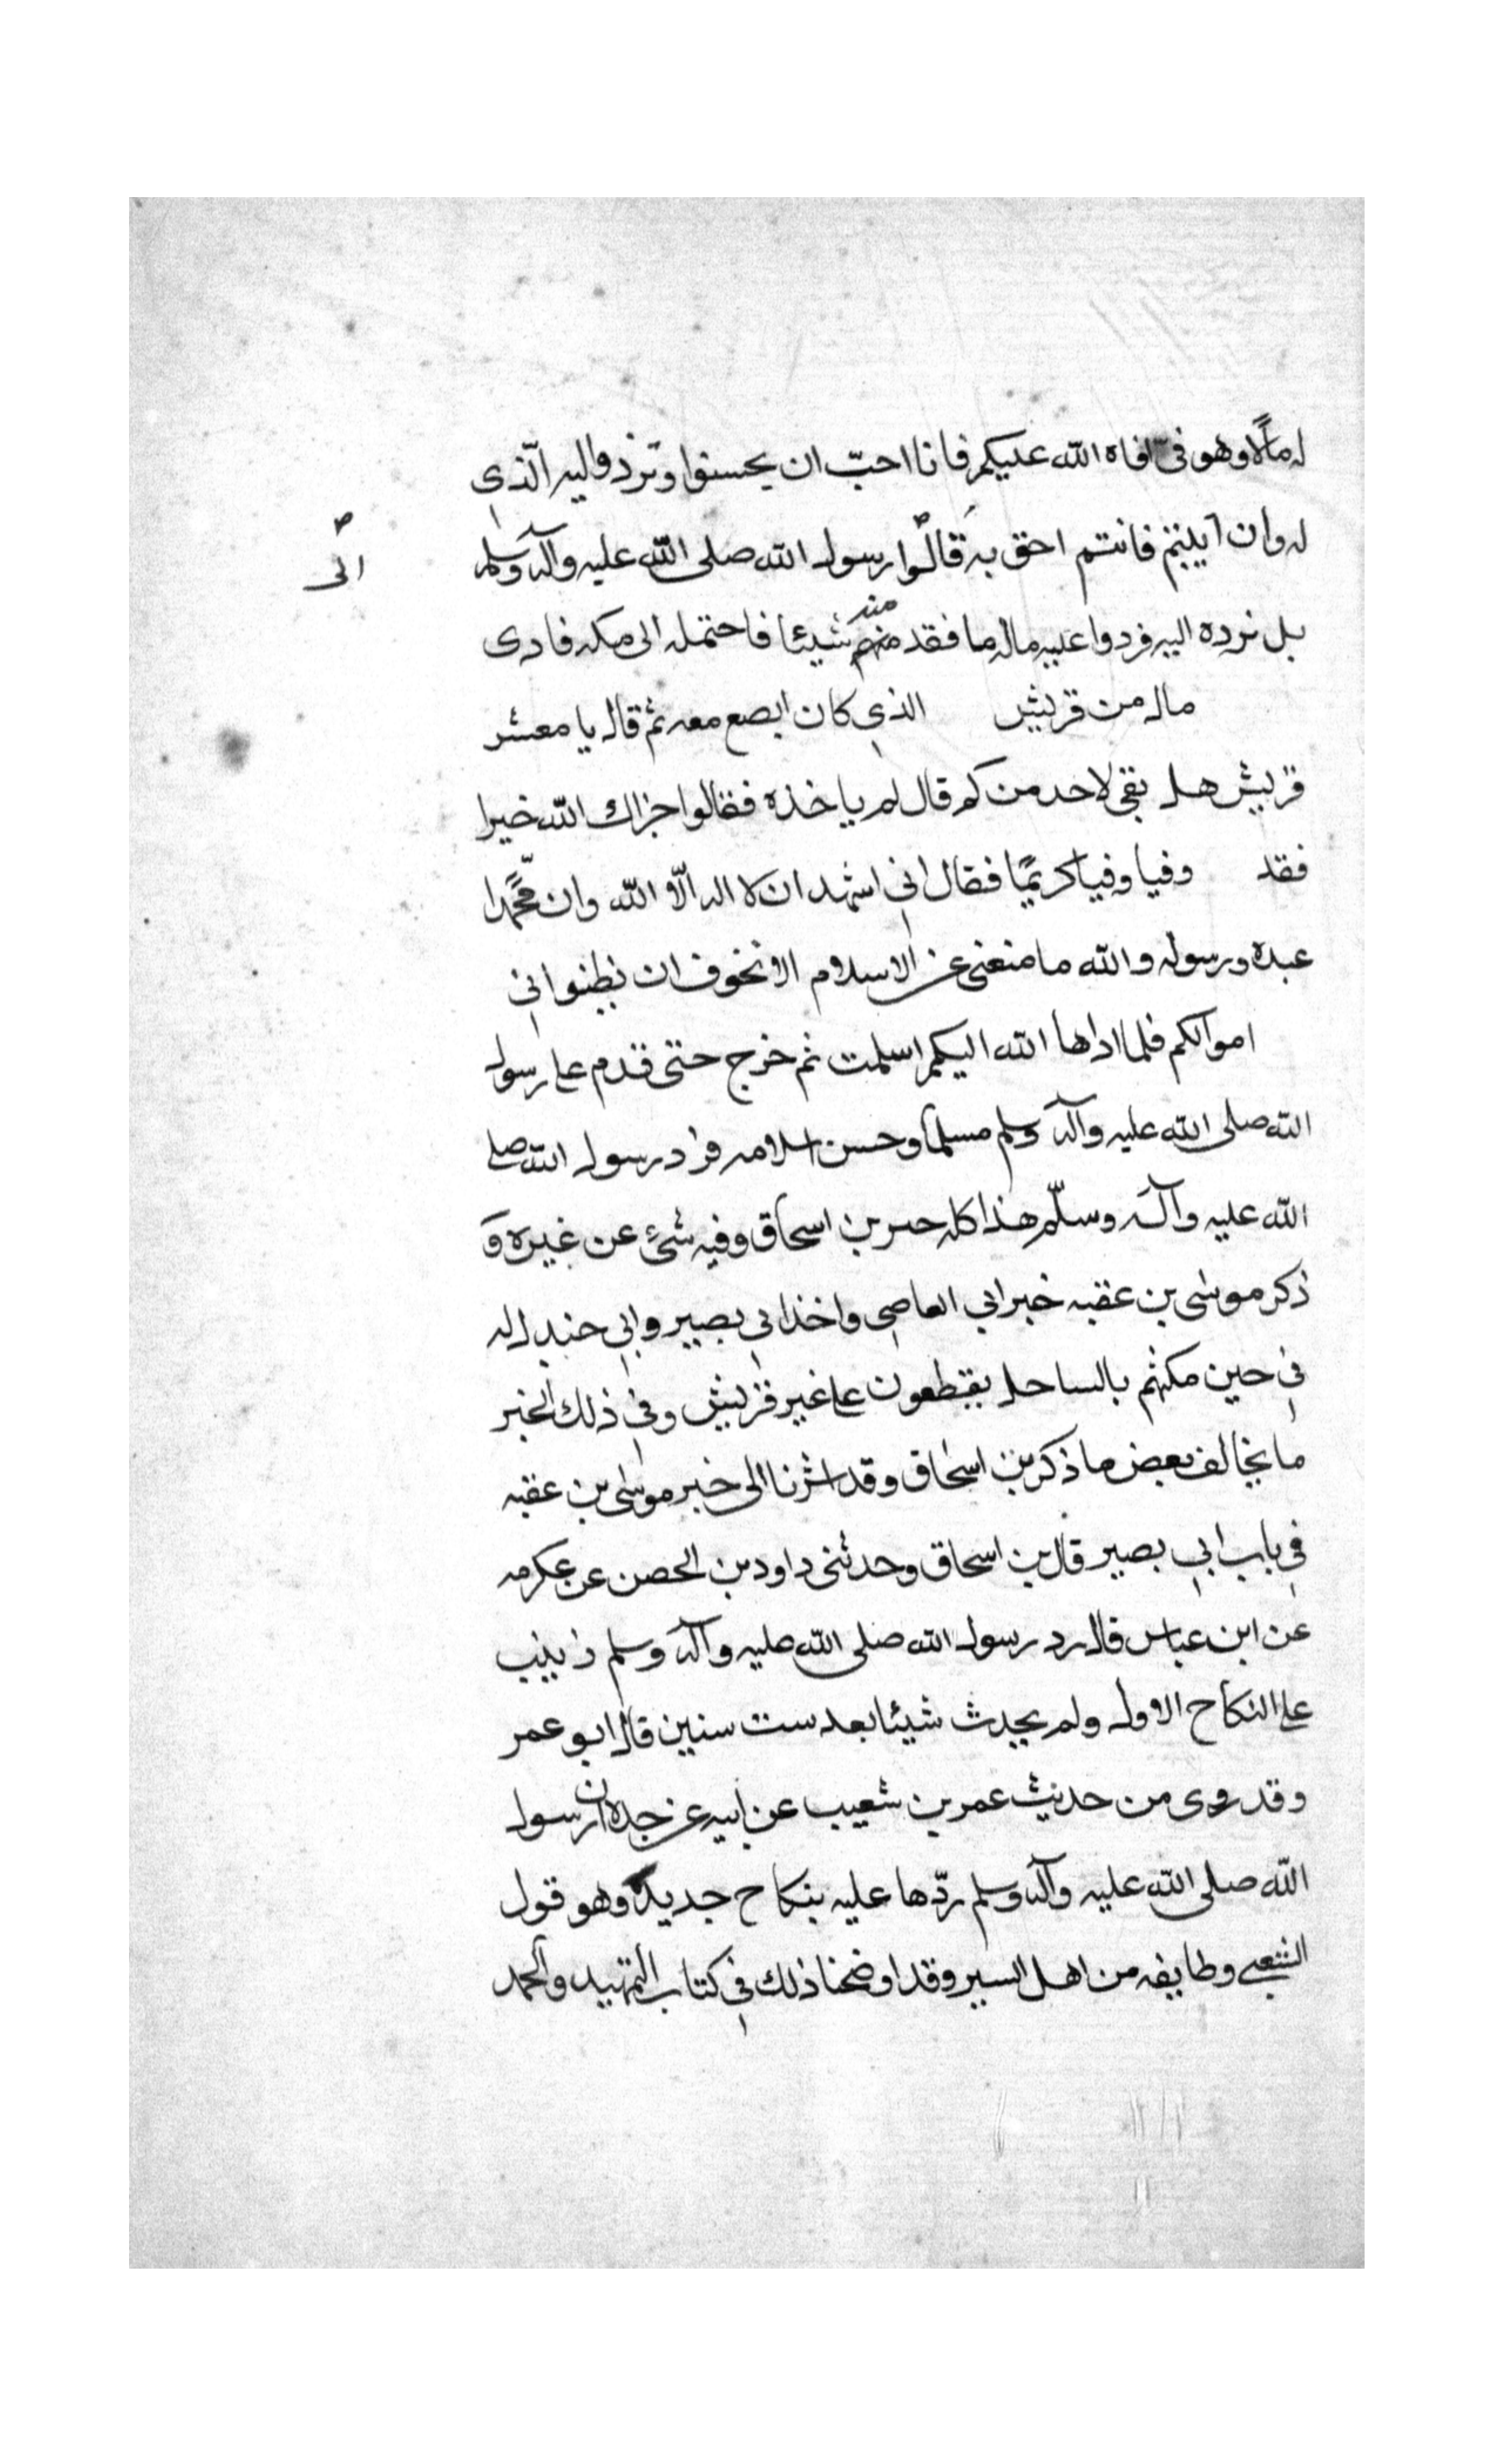 له مالا وهو فئ افاه الله عليكم فانا احبّ ان يحسنوا وتردوا اليه الّذي
له وان ابيتم فانتم احق به قالوا رسول الله صلى الله عليه وآله وسلم
الى
بل نرده اليه فردوا عليه ماله ما فقد منهم منه شيئا فاحتمله الى مكه فادى
ماله من قريش الذي كان ابضع معه ثم قال يا معشر
قريش هل بقى لاحد من كم قال لم ياخذه فقالوا جزاك الله خيرا
فقد وفيا وفيا كريمًا فقال اني اشهد ان لا اله الّا الله وان محمّدا
عبده ورسوله والله ما منعنى عن الاسلام الا تخوف ان نظنوا اني
اموالكم فلما اداها الله اليكم اسلمت ثم خرج حتى قدم على رسول
الله صلى الله عليه وآله وسلم مسلما وحسن اسلامه فرد رسول الله صلى
الله عليه وآله وسلّم هذا كله بن اسحاق وفيه شئ عن غيره وَ
ذكر موسى بن عقبه خبر ابي العاصى واخذ ابي بصير وابي جندل له
في حين مكثهم بالساحل يقطعون على غير قريش وفي ذلك الخبر
ما يخالف بعض ما ذكر بن اسحاق وقد اشرنا الى خبر موسى بن عقبه
في باب ابي بصير قال بن اسحاق وحدثنى داود بن الحصن عن عكرمه
عن ابن عباس قال رد رسول الله صلى الله عليه وآله وسلم زينب
على النكاح الاول ولم يحدث شيئا بعد ست سنين قال ابو عمر
وقد روى من حديث عمر بن شعيب عن ابيه عن جده ان رسول
الله صلى الله عليه وآله وسلم ردّها عليه بنكاح جديد وهو قول
الشعبي وطايفه من اهل السير وقد اوضحنا ذلك في كتاب التمهيد والحمد